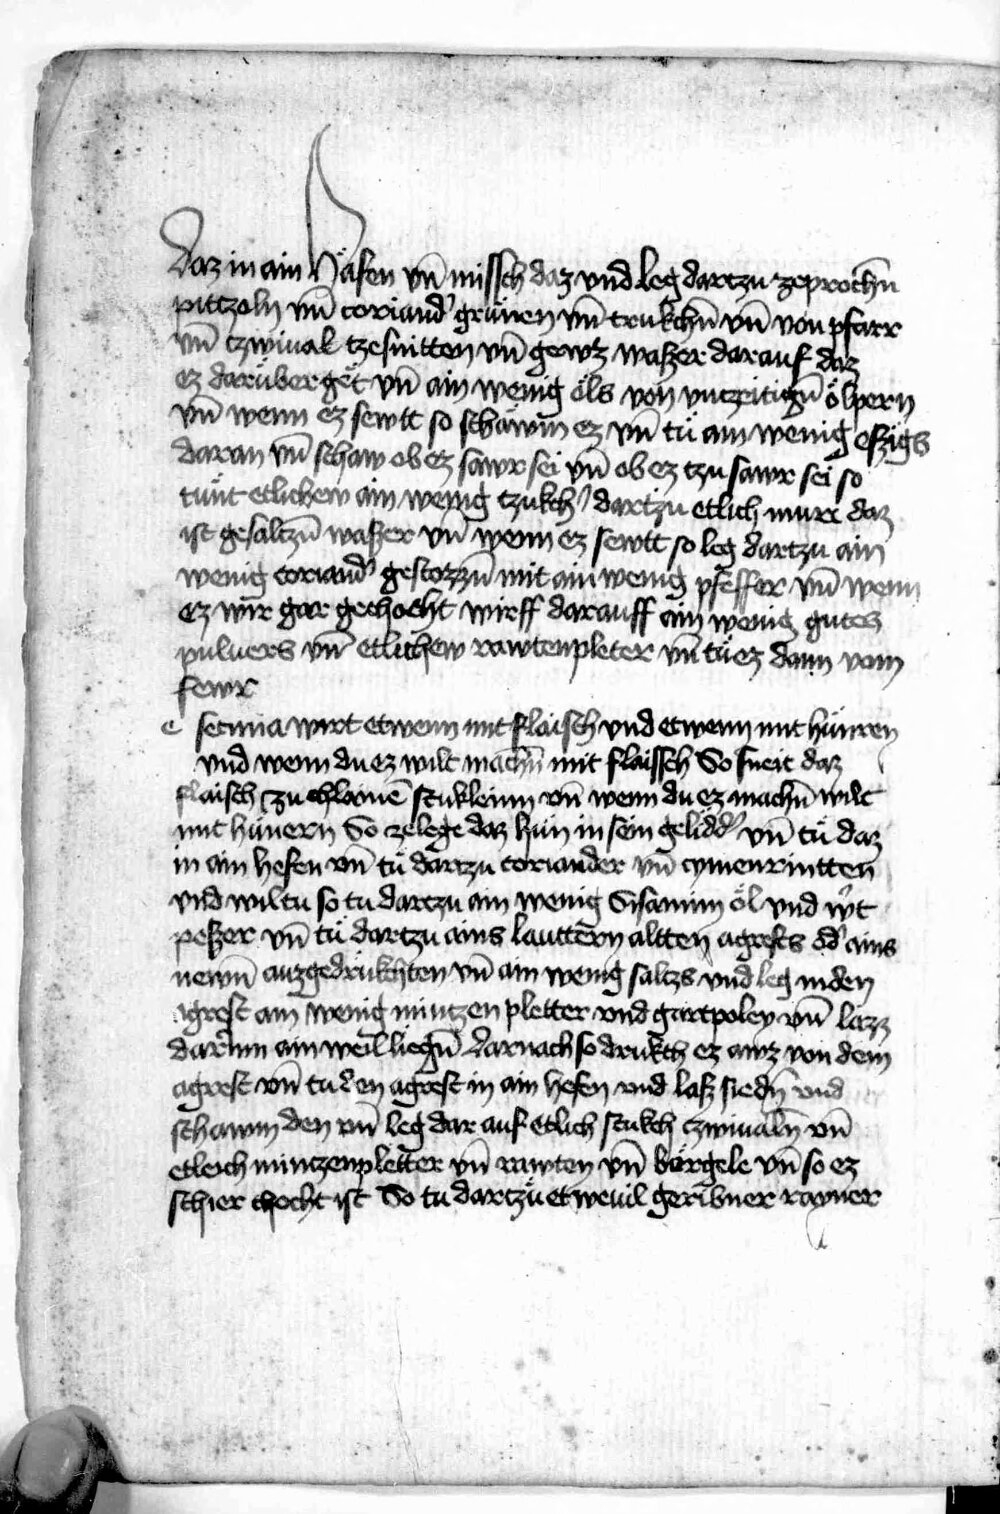 daz in ain Häfen vn̄ missch daz vnd leg dartzu zeprochn̄
pitczoln vn̄ coriandʼ grünen vn̄ trukchn̄ vn̄ von pfarr
vn̄ czwiual tzesnitten vn̄ gewz waßer darauf daz
ez darüber get vn̄ ain wenig öls von vnczeitign̄ ölpern
vn̄ wenn ez sewtt so schäwm ez vn̄ tü ain wenig eßigs
daran vn̄ schaw ob ez sawr sei vn̄ ob ez tzu sawr sei so
tünt etlichew ain wenig tzukchʼ dartzu etlich murr daz
ist gesaltzn̄ waßer vn̄ wenn ez sewtt so leg dartzu ain
wenig coriandʼ gestozzn̄ mit ain wenig pfeffer vn̄ wenn
ez wir gar gechocht wirff darauff ain wenig gutes
puluers vn̄ etlichew rawtenpleter vn̄ tü ez dann vom
fewr
secunia wirt etwenn mit flaisch vnd etwenn mit hünren
vnd wenn du ez wilt machn̄ mit flaissch So sneit daz
flaisch zu chlainē stukleinn vn̄ wenn du ez machn̄ wilt
mit hünern So zelege daz hün in sein geliddʼ vn̄ tü daz
in ain hefen vn̄ tü dartzu coriander vn̄ cymenrintten
vnd wiltu so tu dartzu ain wenig Sisamim öl vnd wʼt
peßer vn̄ tü dartzu ains lauttern altten agrests odʼ ains
newn̄ auzgedrükchten vn̄ ain wenig saltzs vnd leg inden
agrest ain wenig mintzen pletter vnd gartpoley vn̄ lazz
darinn ain weil liegn̄ darnach so drukch ez awz von dem
agrest vn̄ tu den agrest in ain hefen vnd laß siedn̄ vnd
schawm den vn̄ leg dar auf etlich stukch czwiualn̄ vn̄
etleich mintzenpletter vn̄ rawten vn̄ börgele vn̄ so ez
schier chocht ist So tu dartzü etweuil geribner rayner